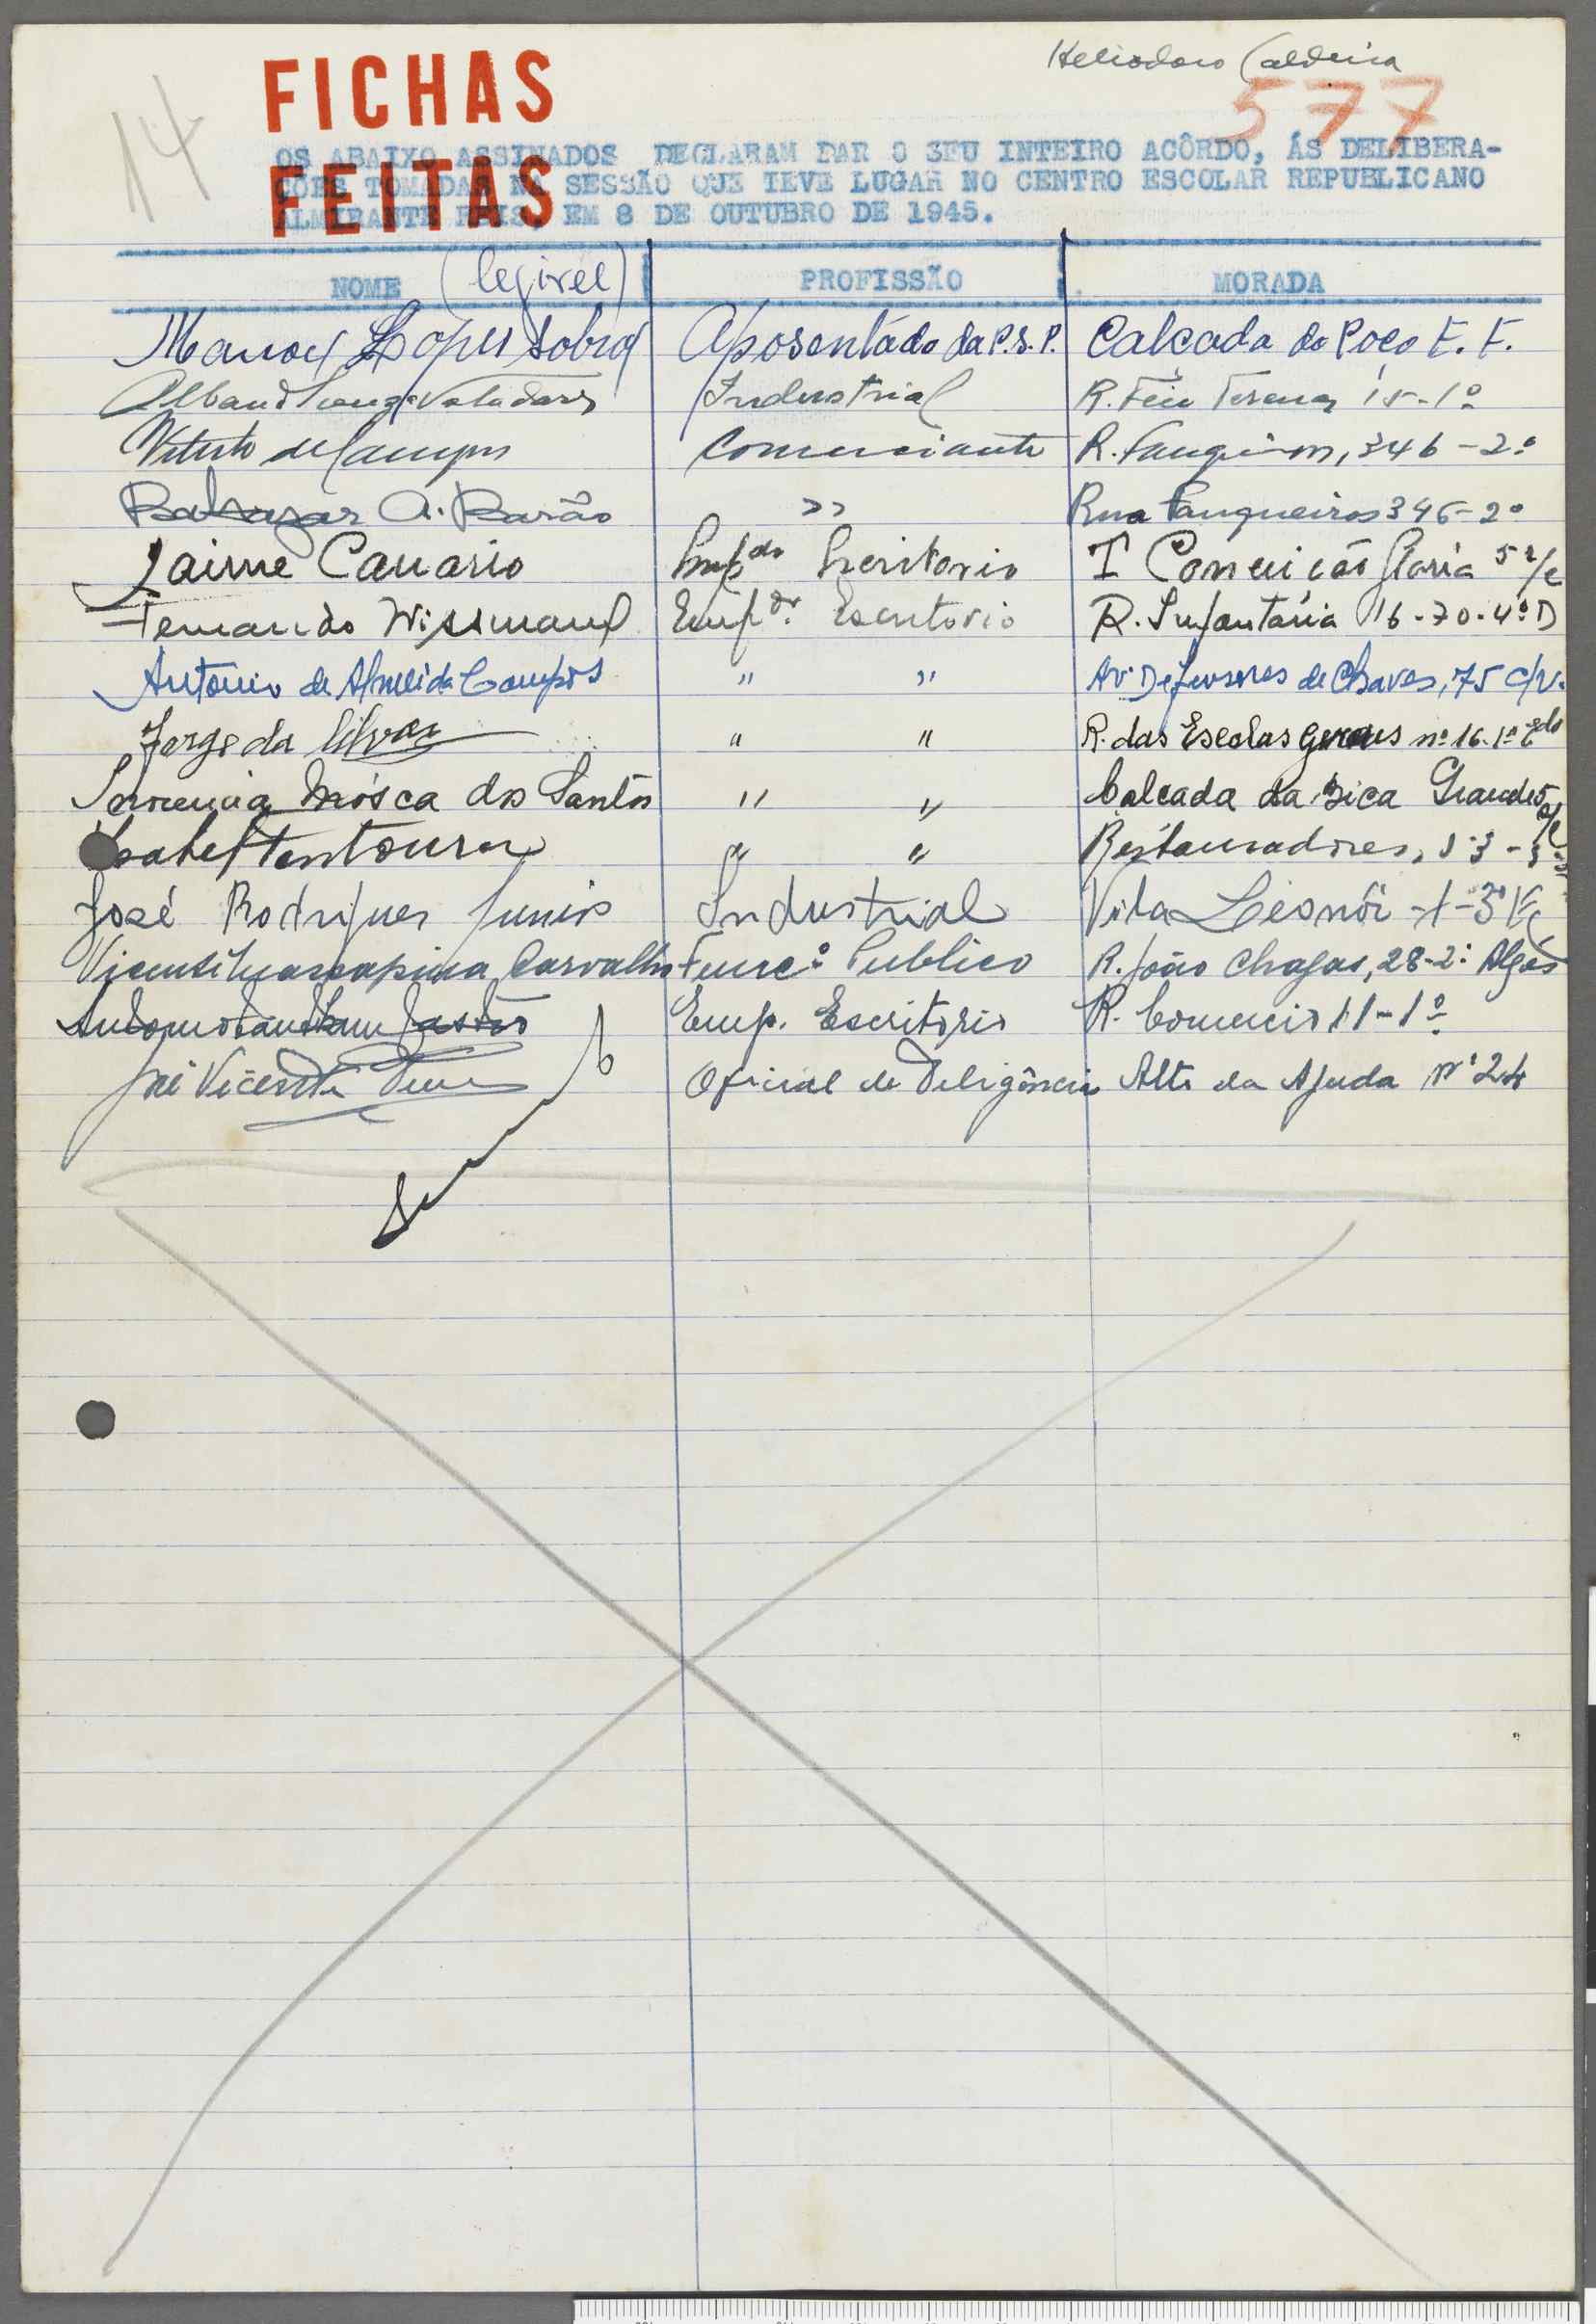 Heliodoro Caldeira
14
FICHAS
577
OS ABAIXO ASSINADOS DECLARAM DAR O SEU INTEIRO ACÔRDO, ÁS DELIBERA-
FEITAS
ÇÕES TOMADAS NA SESSÃO QUE TEVE LUGAR NO CENTRO ESCOLAR REPUBLICANO
ALMIRANTE REIS, EM 8 DE OUTUBRO DE 1945.
NOME (legivel) PROFISSÃO MORADA
Manoel Lopes Sobral Aposentádo da P.S.P. Calçada do Poço F. F.
Industrial R. 15-1º
de Campos Comerciante R. Fanqueiros, 346-2º
Baltazar A. Barão " Rua Fanqueiros 346-2º
Jaime Canario Empdo Escritorio T Conceição Gloria 5 r/c
Fernando Wissmann Empdo. Escritorio R. Infantaria 16-70-4º D
Antonio de Almeida Campos " " Av. Defensores de Chaves, 75 c/v.
Jorge da Silva " " R. das Escolas Geraes nº 16-1º
Mósca dos Santos " " Calçada da Bica Grande
" " Restauradores, 13-3º
José Rodrigues Junior Industrial Vila 1-3º
Carvalho Func.º Publico R. João Chagas, 28-2º Algés
Castro Emp. Escritorio R. Comercio 11-1º
José Vicente Oficial de Deligencia Alto da Ajuda Nº 24